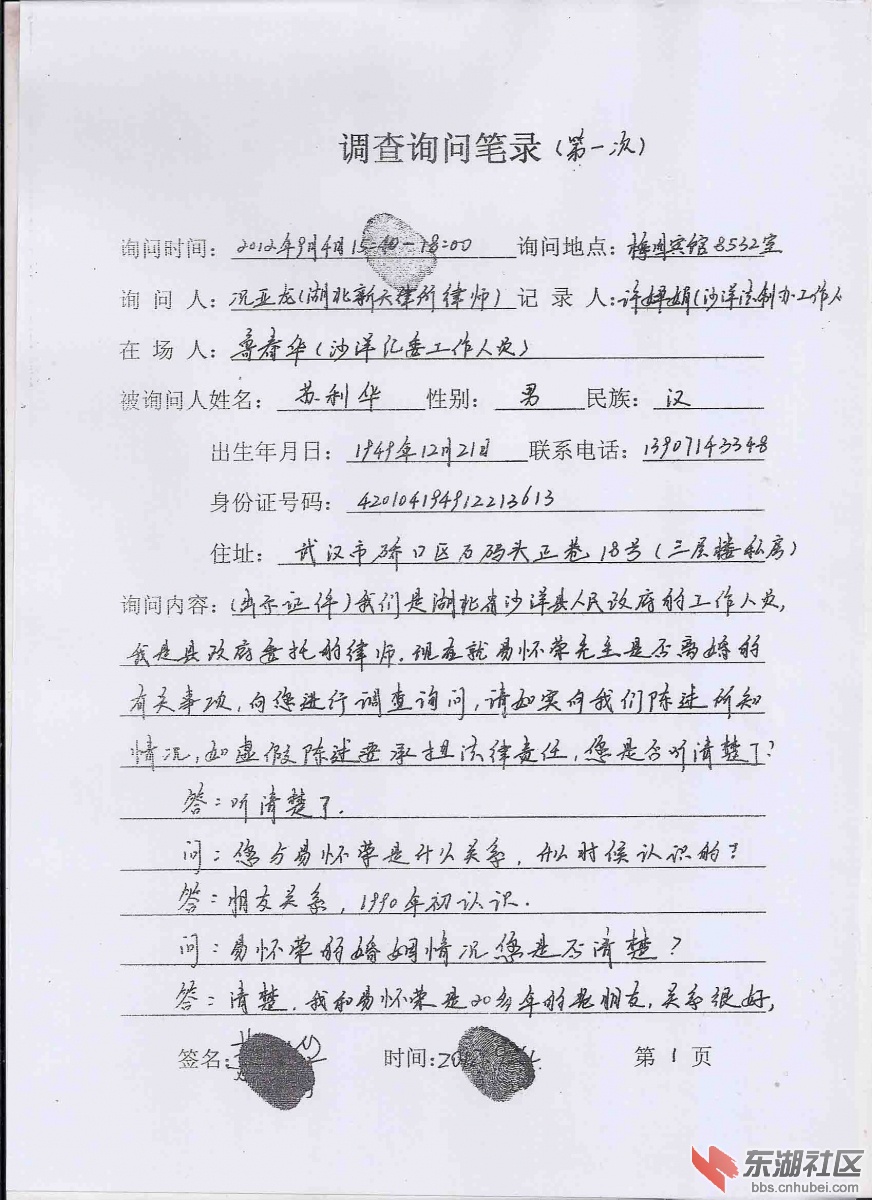 调查询问笔录(第一次)
询问时间:2012年9月4日15:40-18:00 询问地点:梅园宾馆8532室
询问人:况亚龙(湖北新天律所律师)记录人:许婵娟(沙洋法制办工作人
在场人:鲁春华(沙洋纪委工作人员)
被询问人姓名:苏利华 性别:男 民族:汉
出生年月日:1949年12月21日 联系电话:13907143348
身份证号码:420104194912213613
住址:武汉市硚口区石码头正巷18号(三层楼私房)
询问内容:(出示证件)我们是湖北省沙洋县人民政府的工作人员,
我是县政府委托的律师.现在就易怀荣先生是否离婚的
有关事项,向您进行调查询问,请如实向我们陈述所知
情况,如虚假陈述要承担法律责任,您是否听清楚了?
答:听清楚了.
问:您与易怀荣是什么关系,什么时候认识的?
答:朋友关系,1990年初认识.
问:易怀荣的婚姻情况您是否清楚?
答:清楚.我和易怀荣是20多年的老朋友,关系很好,
签名: 时间: 第1页
东湖社区
bbs.cnhubei.com